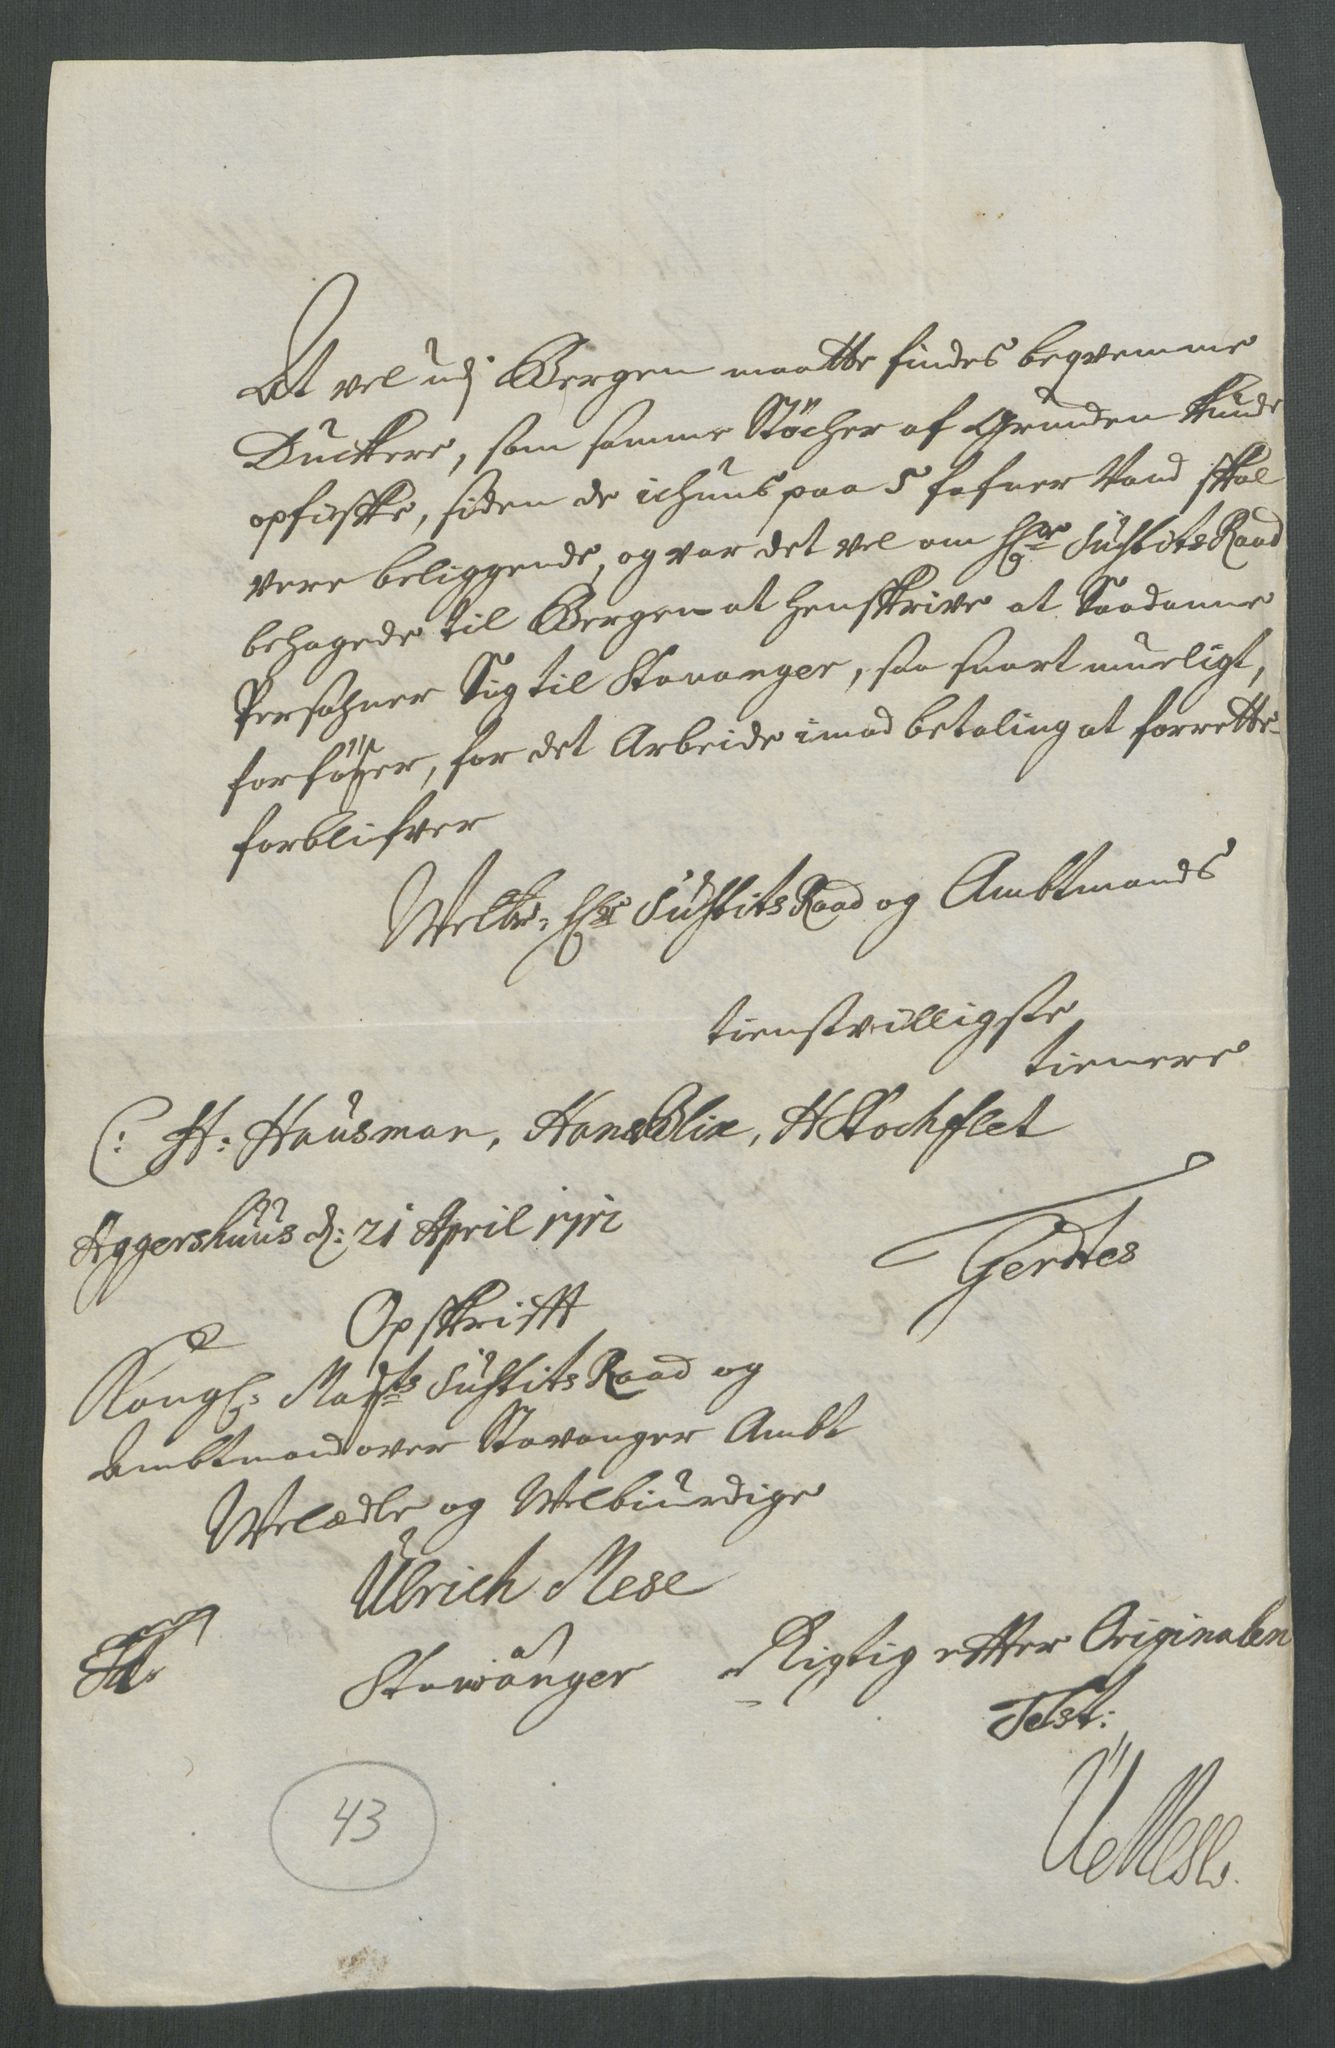 At vel udj Bergen maatte findes beqvemme
Duckere, som samme Støcher af Grunden kunde
opfiske, siden de ichuns paa 5 fafner Vand skal
vere beliggende, og var det vel om Hr Justits Raad
behagede til Bergen at henskrive at Saadanne
Persohner Sig til Stavanger, saa snart mueligt,
forføyer, for det Arbeide imod betaling at forrette
forblifver
Welb: Hr Justits Raad og Ambtmands
tienstvilligste
tienere
C: H: Hausman, Hans Blix, H Stochflet
Aggershuus d: 21 April 1712
Gerdtes
Opskrifft
Kongl: Mayts Justits Raad og
Ambtmand over Stavanger Ambt
Welædle og Welbiurdige
Ulrich Mese
Stawanger
Rigtig efter Originalen
Test:
UMese.
43